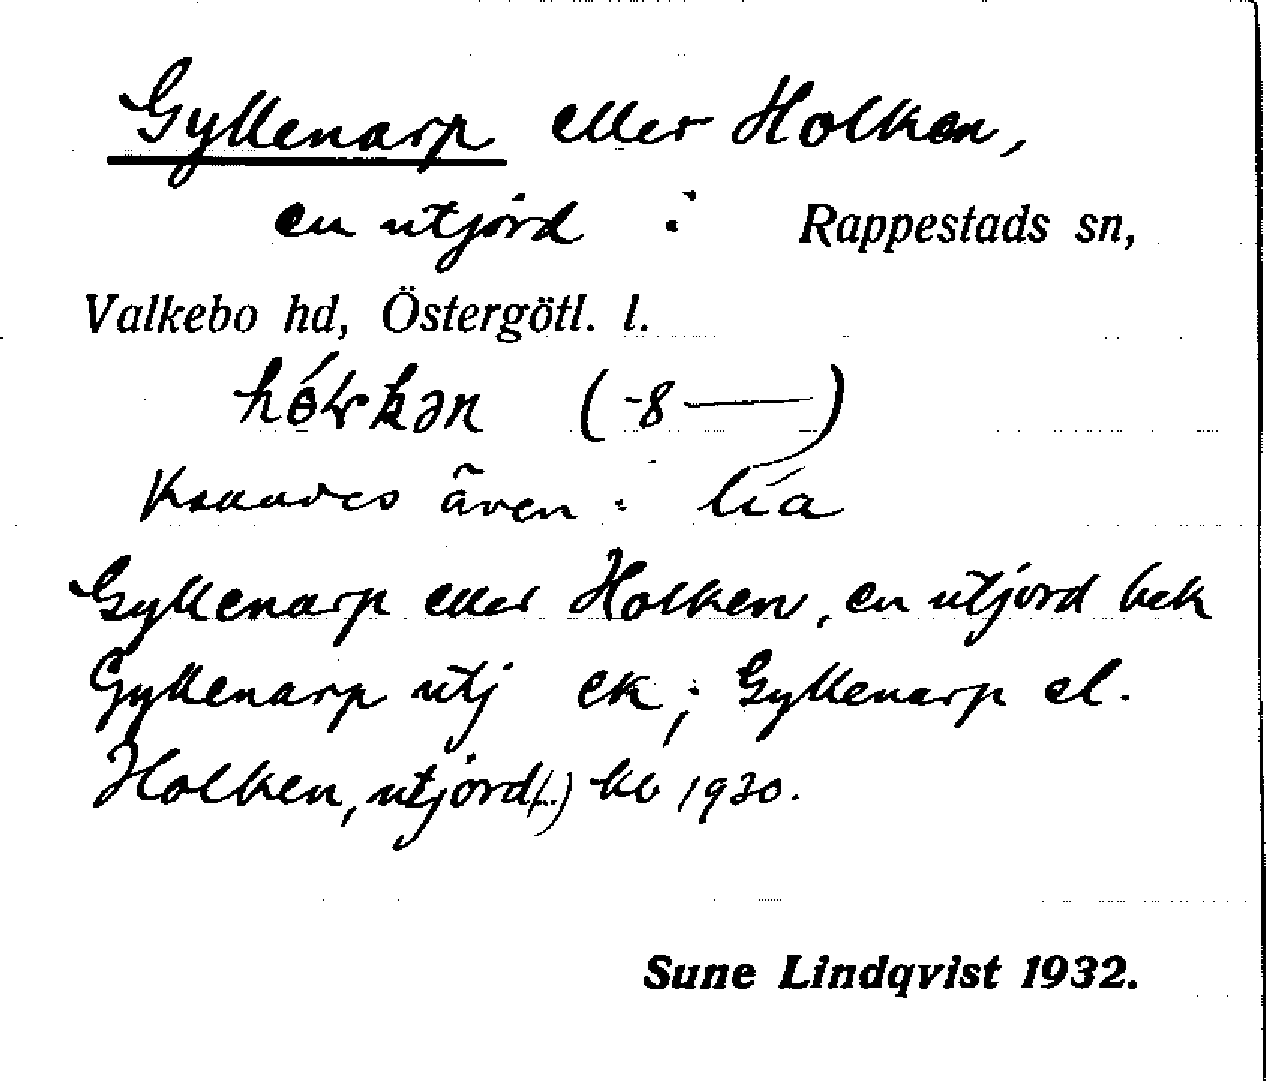 Gyllenarp eller Holken,
en utjord i Rappestads sn,
Valkebo hd, Östergötl. l.
(-8—)
även: lia
Gyllenarp eller Holken, en utjord bek
Gyllenarp utj ek; Gyllenarp el.
Holken, utjord(..) kb 1930.
Sune Lindqvist 1932.